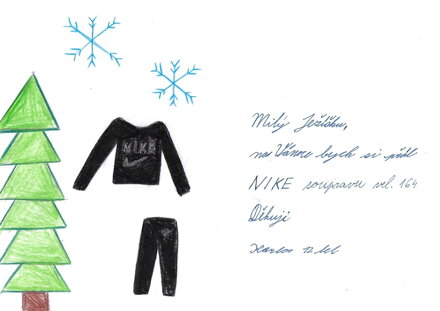 NIKE
Milý Ježíšku,
na Vánoce bych si přál
NIKE soupravu vel. 164
Děkuji
12 let